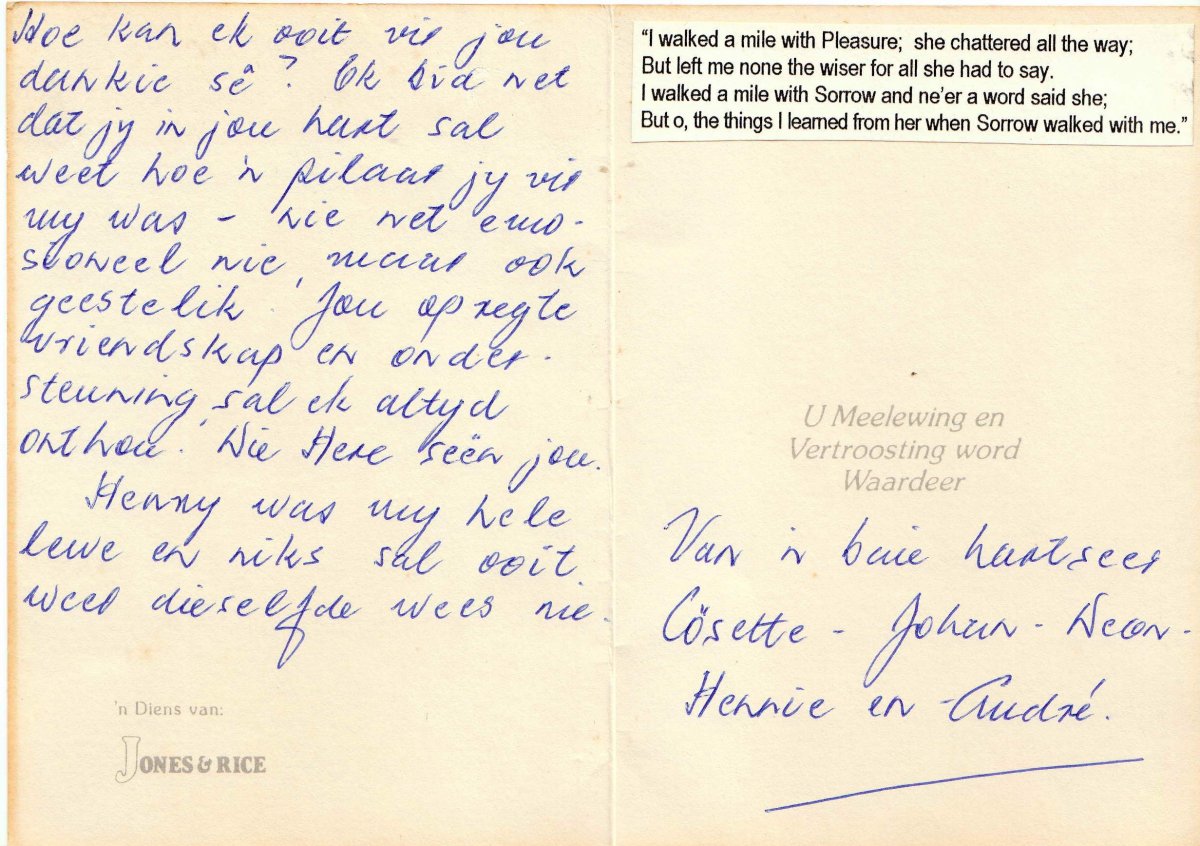 Hoe kan ek ooit vir jou
dankie sê? Ek bid net
dat jy in jou hart sal
weet hoe 'n pilaar jy vir
my was – nie net emo-
sioneel nie, maar ook
geestelik. Jou opregte
vriendskap en onder-
steuning sal ek altyd
onthou. Die Here seën jou.
Henny was my hele
lewe en niks sal ooit
weer dieselfde wees nie.
'n Diens van:
JONES & RICE
"I walked a mile with Pleasure; she chattered all the way;
But left me none the wiser for all she had to say.
I walked a mile with Sorrow and ne'er a word said she;
But o, the things I learned from her when Sorrow walked with me."
U Meelewing en
Vertroosting word
Waardeer
Van 'n baie hartseer
Cösette - Johan - Deon -
Hennie en André.